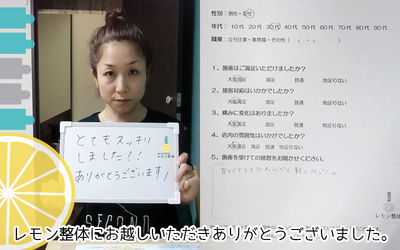 とてもスッキリ
しました!!
ありがとうございます!
レモン整体
性別：男性・女性
年代：10代 20代 30代 40代 50代 60代 70代 80代 90代
職業：立ち仕事・事務職・その他（
1、施術はご満足いただけましたか？
大変満足 満足 普通 物足りない
2、接客対応はいかがでしたか？
大変満足 満足 普通 物足りない
3、痛みに変化はありますか？
大変満足 満足 普通 物足りない
4、店内の雰囲気はいかがでしたか？
大変満足 満足 普通 物足りない
5、施術を受けての感想をお聞かせください。
レモン整体
レモン整体にお越しいただきありがとうございました。